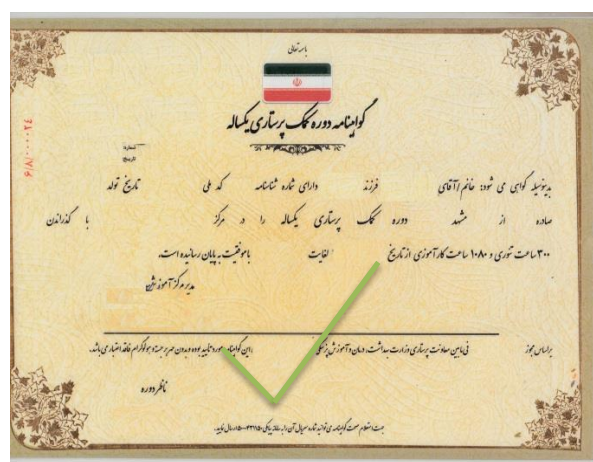 باسمه تعالی
گواهینامه دوره کمک پرستاری یکساله
شماره:
تاریخ:
بدینوسیله گواهی می شود: خانم / آقای فرزند دارای شماره شناسنامه کد ملی تاریخ تولد
صادره از مشهد دوره کمک پرستاری یکساله را در مرکز با گذراندن
۳۰۰ ساعت تئوری و ۱۰۸۰ ساعت کارآموزی از تاریخ لغایت باموفقیت به پایان رسانیده است.
مدیر مرکز آموزش
براساس مجوز فی مابین معاونت پرستاری وزارت بهداشت، درمان و آموزش پزشکی این گواهینامه مورد تایید بوده و بدون مهر برجسته و هولوگرام فاقد اعتبار می باشد.
ناظر دوره
جهت استعلام صحت گواهینامه می توانید شماره سریال آن را به سامانه پیامکی ارسال نمایید.